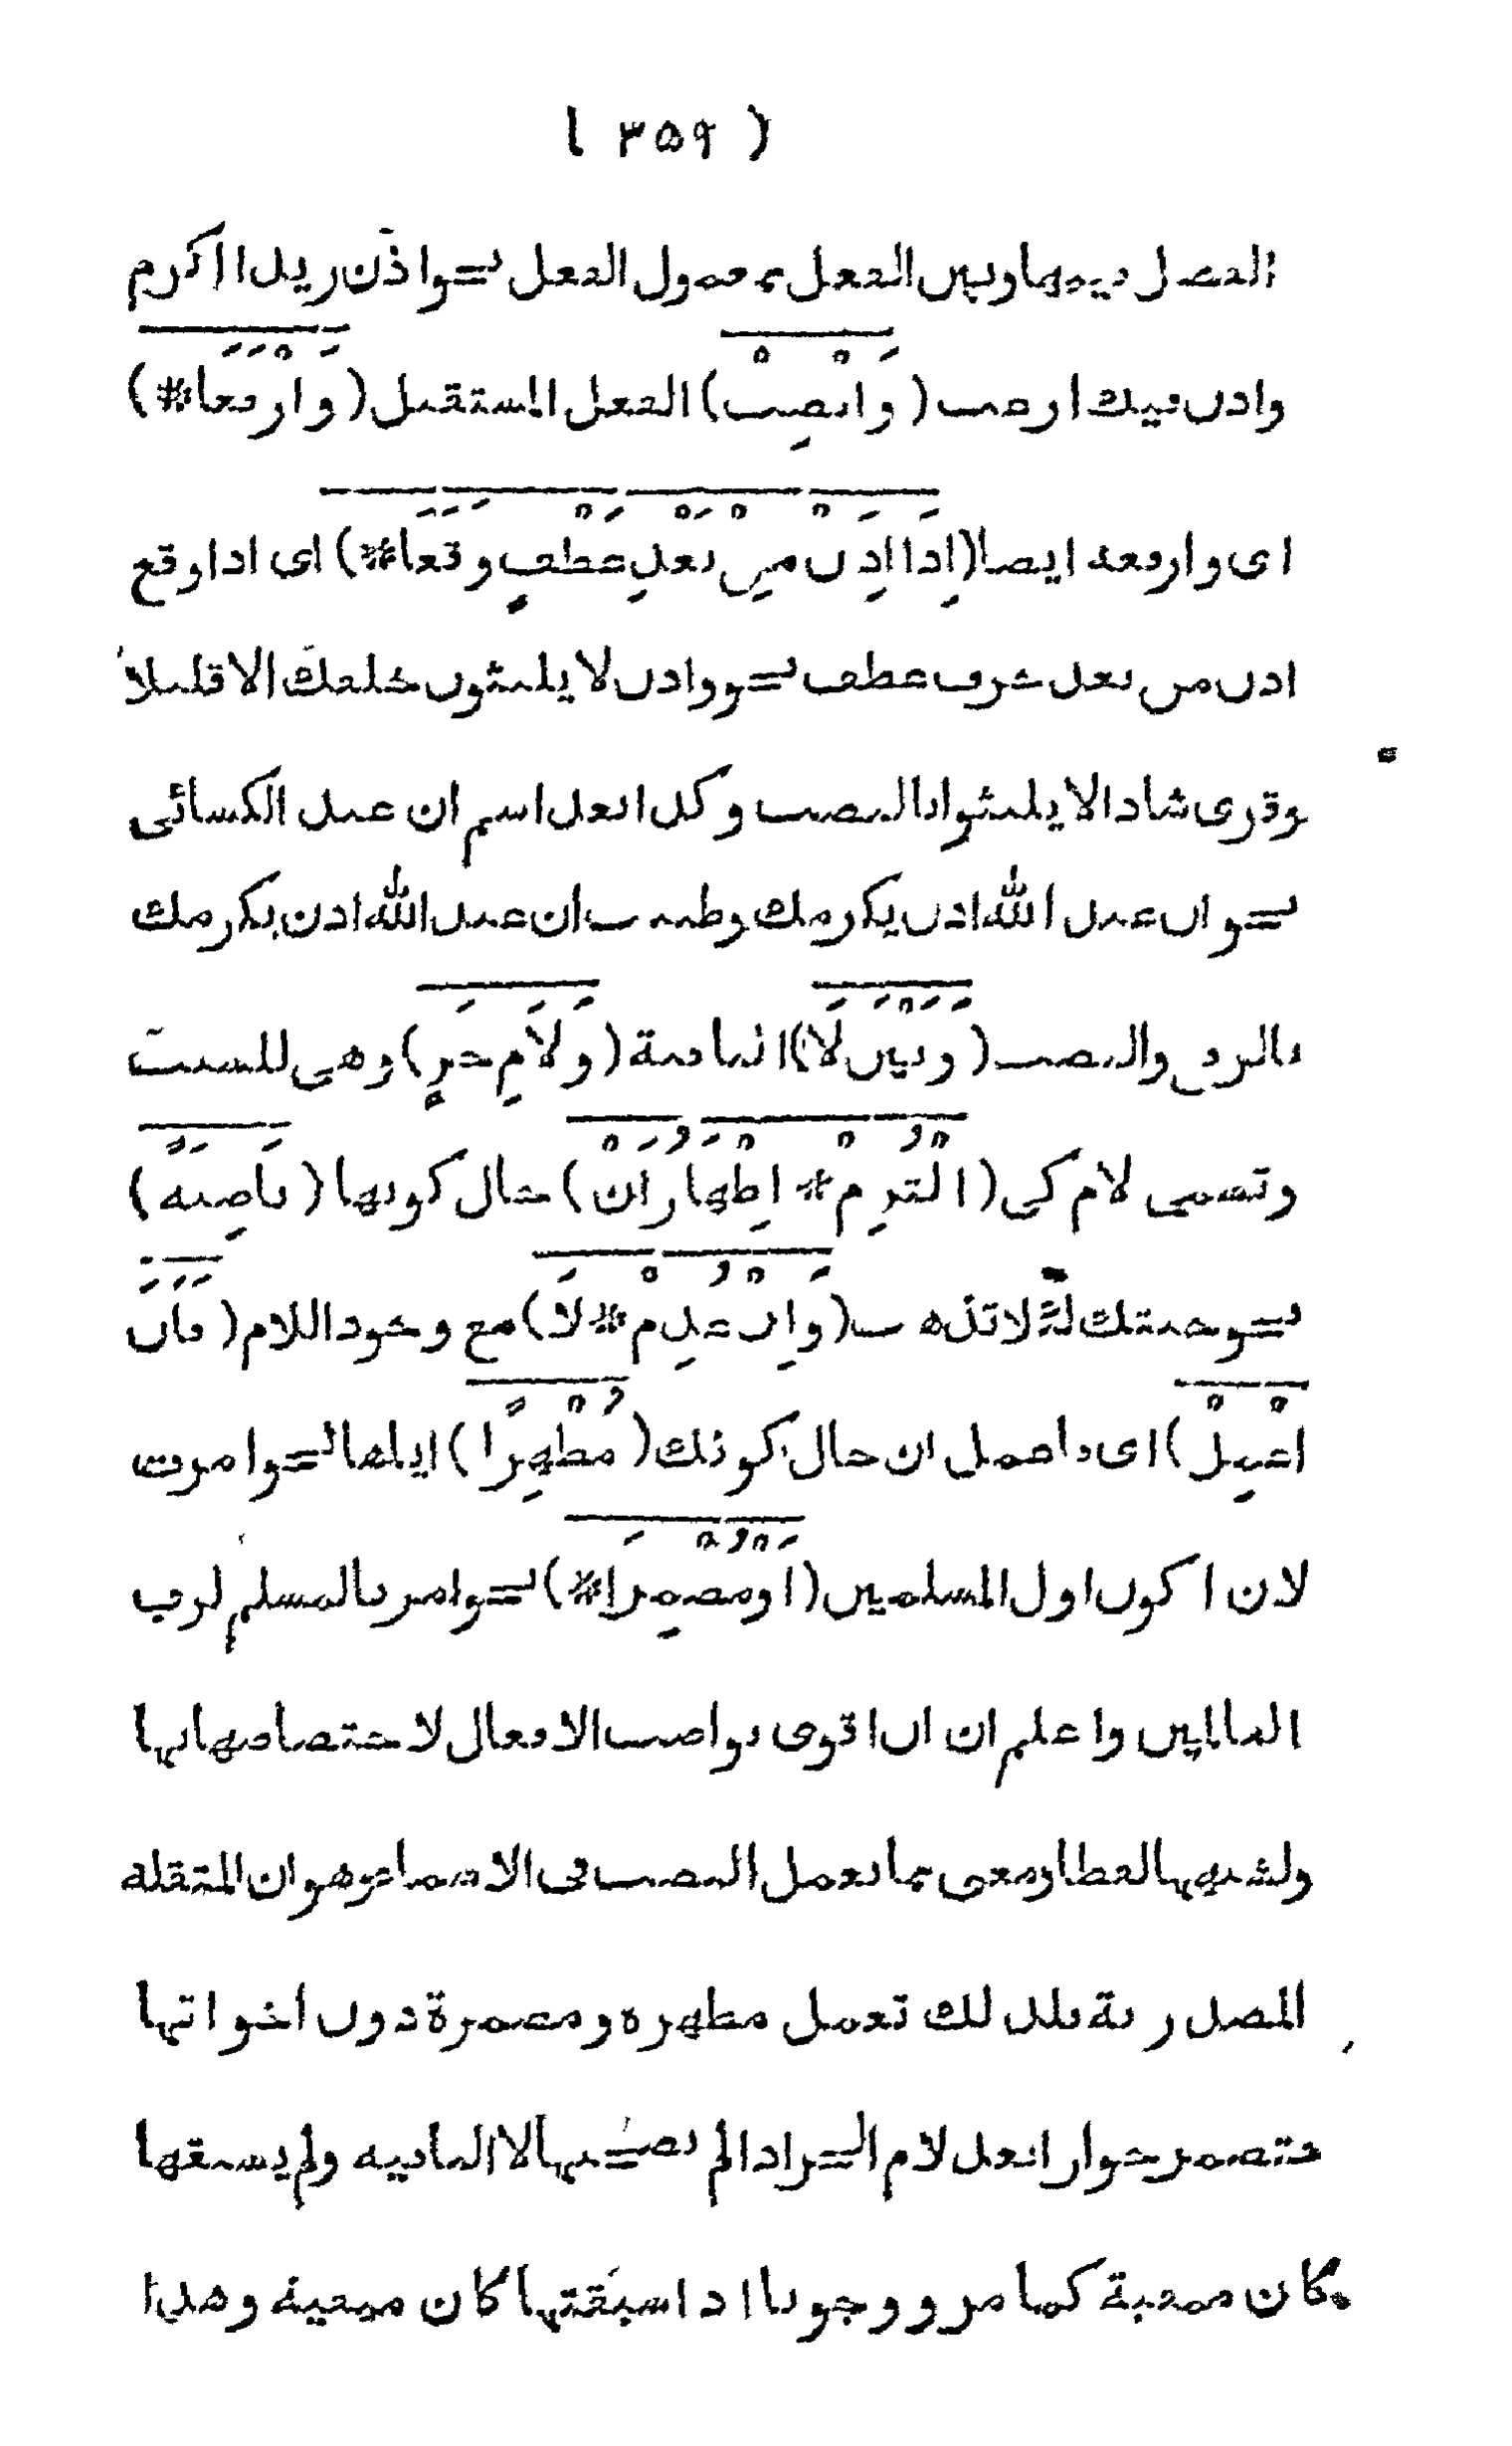 ( ٣٥٩ )
الفصل بينهما وبين الفعل بمعمول الفعل نحو اذن زيدا اكرم
واذن فيك ارغب (وَانْصِبْ) الفعل المستقبل (وَارْفَعَا*)
اى وارفعه ايضا (اِذَا اِذَنْ مِنْ بَعْدِ عَطْفٍ وَقَعَا*) اى اذا وقع
اذن من بعد حرف عطف نحو واذن لا يلبثون خلفك الا قليلا
وقرى شاذا لا يلبثوا بالنصب وكذا بعد اسم ان عند الكسائى
نحو ان عبد الله اذن يكرمك وظننت ان عبد الله اذن يكرمك
بالرفع والنصب (وَبَيْنَ لَا) النافية (وَلَامِ جَرٍ) وهى للسبب
وتسمى لام كى (الْتُزِمْ* اِظْهَارُ اَنْ) حال كونها (نَاصِبَةً)
نحو جئتك لئلا تذهب (وَاِنْ عُدِمْ* لَا) مع وجود اللام (فَاَنَ
اعْمِلْ) اى فاعمل ان حال كونك (مُظْهِرًا) اياها نحو امرت
لان اكون اول المسلمين (اَوْ مُضْمِرَا*) نحو امرنا لنسلم لرب
العالمين واعلم ان ان اقوى نواصب الافعال لاختصاصها بها
ولشبهها لفظا ومعنى بما يعمل النصب فى الاسماء وهو ان المثقلة
المصدرية فلذلك تعمل مظهرة ومضمرة دون اخواتها
فتضمر جوازا بعد لام الجر اذا لم تصحبها لا النافية ولم يسبقها
كان منفية كما مر ووجوبا اذا سبقتها كان منفية وهذا